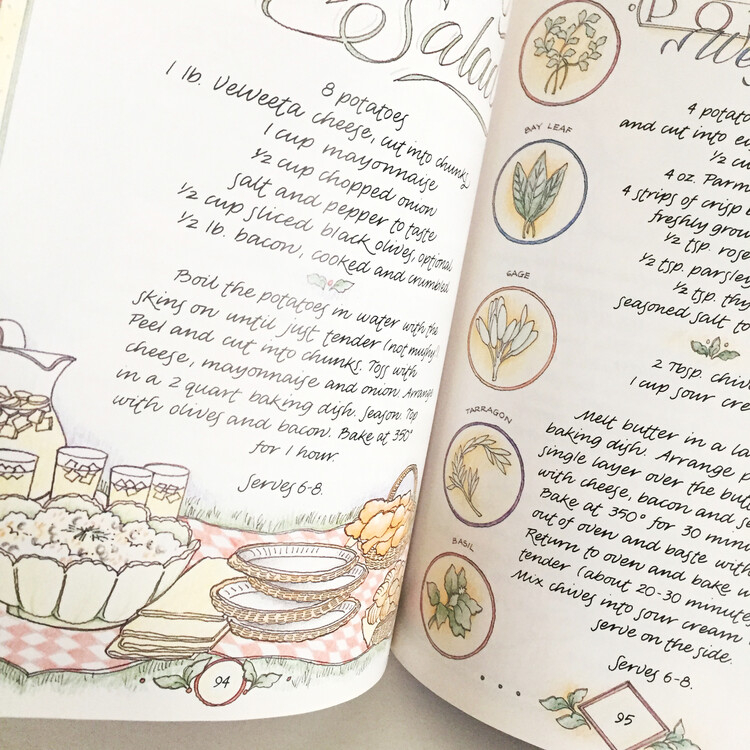 Salad
8 potatoes
1 lb. Velveeta cheese, cut into chunks
1 cup mayonnaise
1/2 cup chopped onion
salt and pepper to taste
1/2 cup sliced black olives, optional
1/2 lb. bacon, cooked and crumbled
Boil the potatoes in water with the
skins on until just tender (not mushy!)
Peel and cut into chunks. Toss with
cheese, mayonnaise and onion. Arrange
in a 2 quart baking dish. Season. Top
with olives and bacon. Bake at 350°
for 1 hour.
Serves 6-8.
94
BAY LEAF
SAGE
TARRAGON
BASIL
4
and cut into
1/2
4 oz.
4 strips of crisp
freshly
1/2 tsp.
1/2 tsp. parsley
1/2 tsp.
seasoned salt
2 Tbsp.
1 cup sour
Melt butter in a
baking dish. Arrange
single layer over the
with cheese, bacon and
Bake at 350° for 30
out of oven and baste with
Return to oven and bake
tender (about 20-30 minutes
Mix chives into sour cream
serve on the side.
Serves 6-8.
95